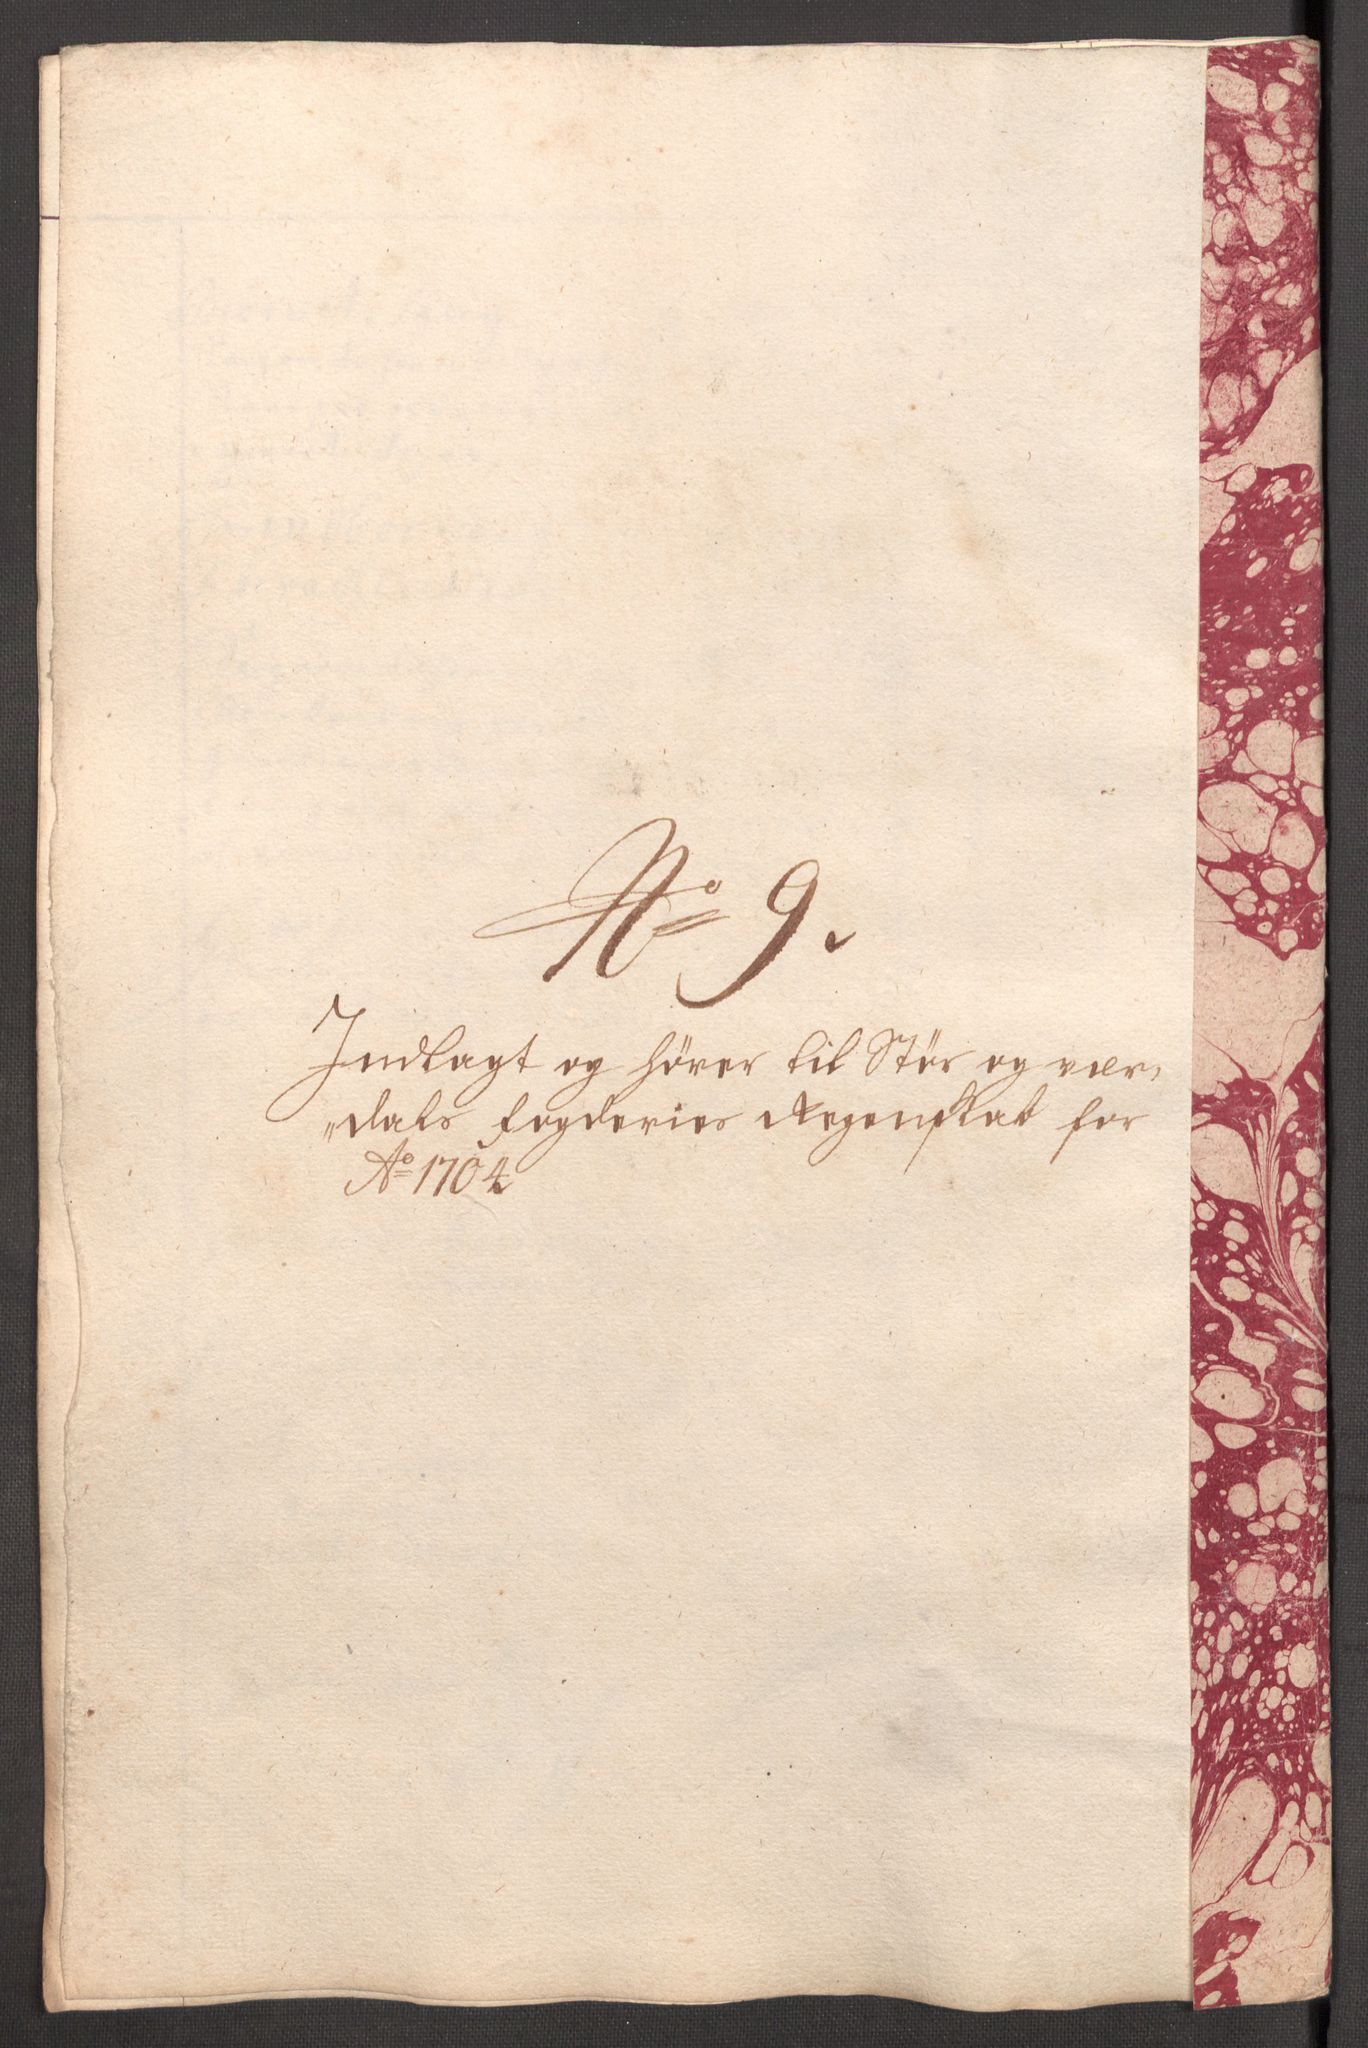 No 9.
Indlagt og hører til Stør og vær„
„dals fogderies Regenskab for
Ao 1704